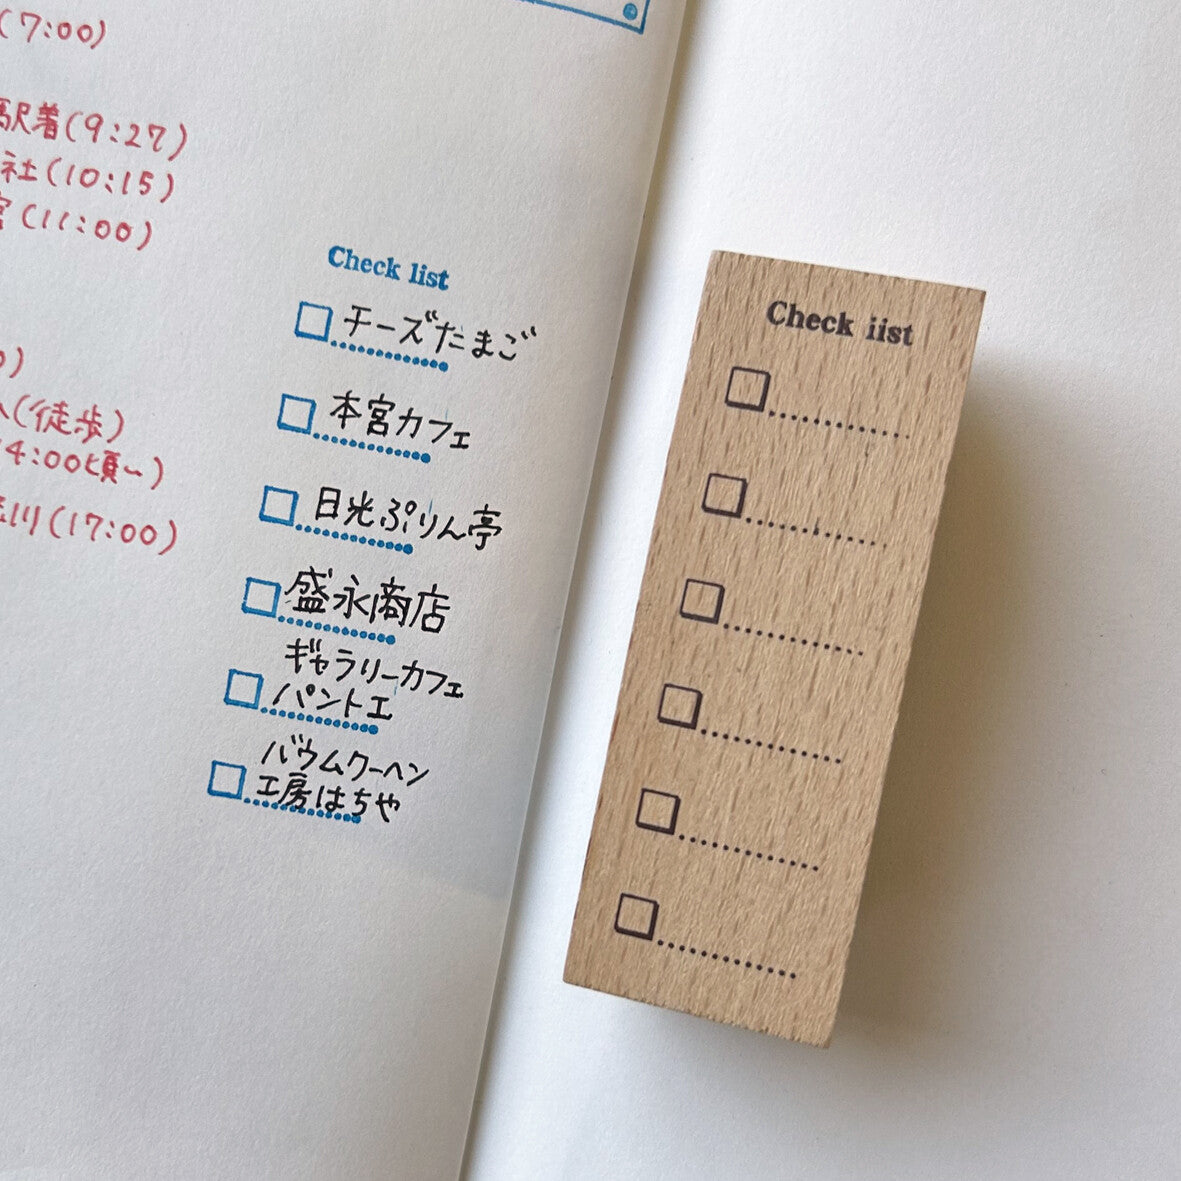 (7:00)
駅着(9:27)
社(10:15)
宮(11:00)
)
(徒歩)
14:00頃〜)
川(17:00)
Check list
チーズたまご
本宮カフェ
日光ぷりん亭
盛永商店
ギャラリーカフェ
パントエ
バウムクーヘン
工房はちや
Check iist